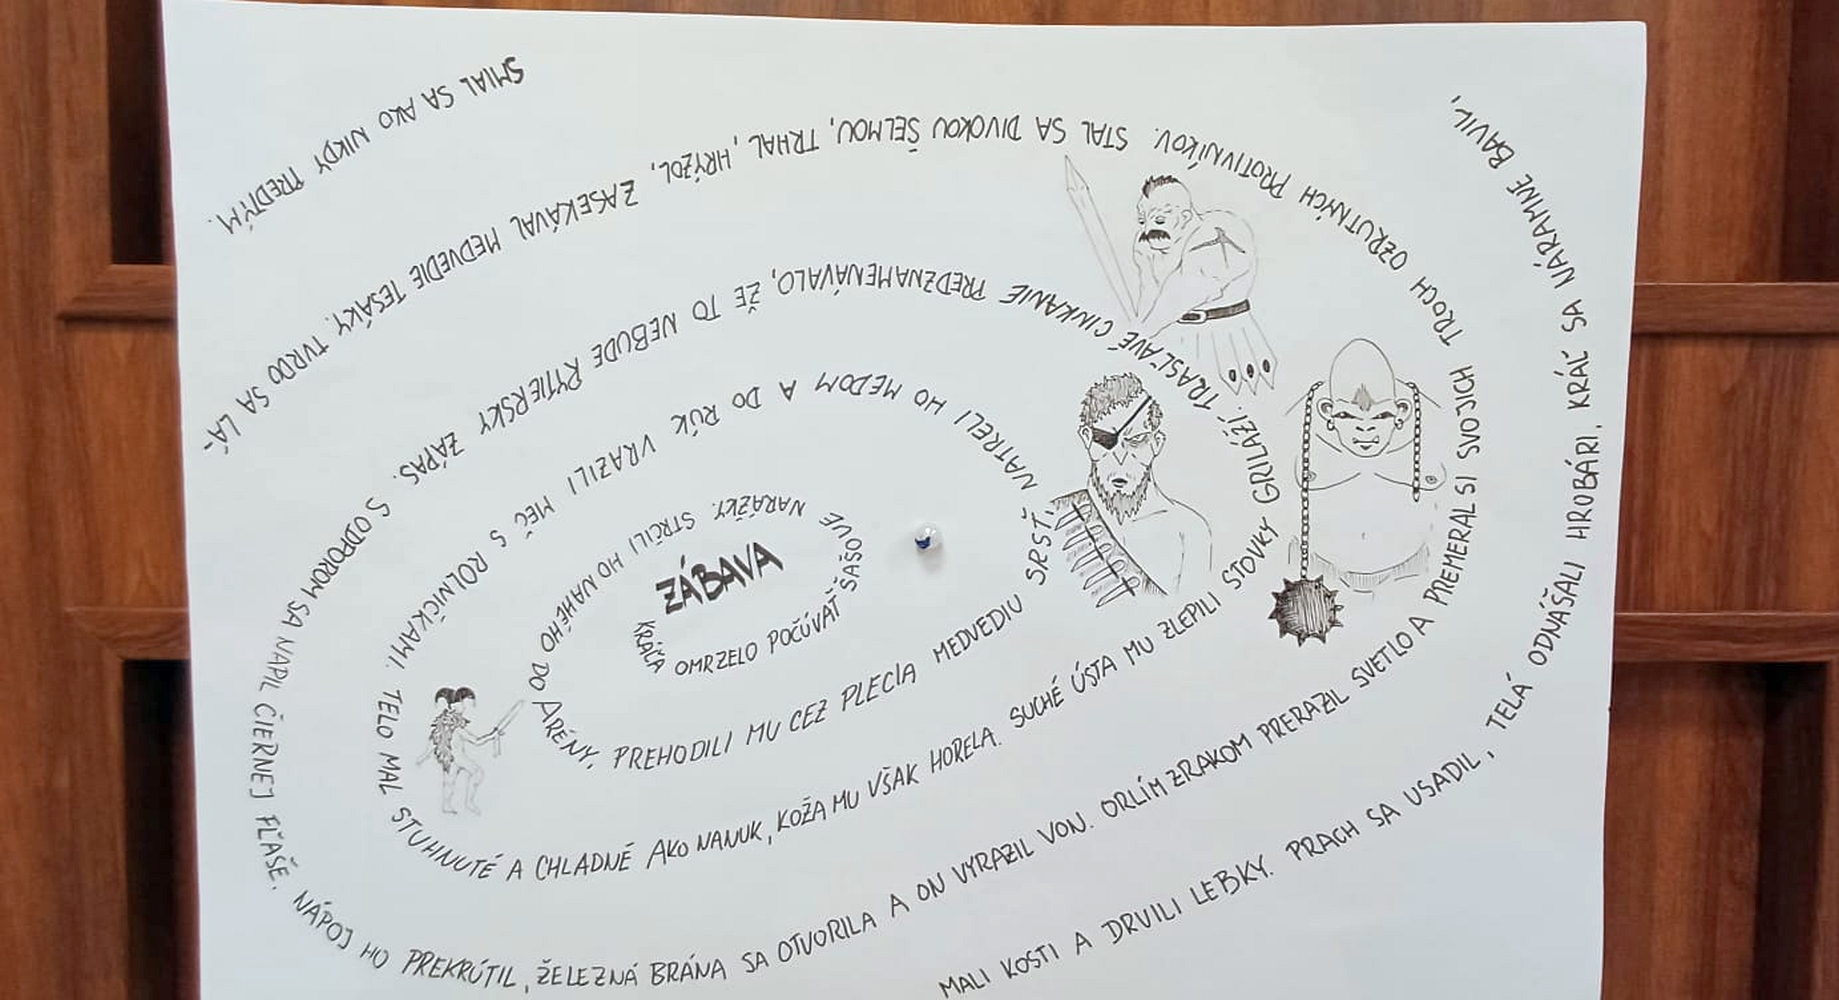 ZÁBAVA
KRÁĽA OMRZELO POČÚVAŤ ŠAŠOVE NARÁŽKY. STRČILI HO NAHÉHO DO ARÉNY, PREHODILI MU CEZ PLECIA MEDVEDIU SRSŤ, NATRELI HO MEDOM A DO RÚK VRAZILI MEČ S ROLNIČKAMI. TELO MAL STUHNUTÉ A CHLADNÉ AKO NANUK, KOŽA MU VŠAK HORELA. SUCHÉ ÚSTA MU ZLEPILI STOVKY GRILÁŽÍ. TRASĽAVÉ CINKANIE PREDZNAMENÁVALO, ŽE TO NEBUDE RYTIERSKY ZÁPAS. S ODPOROM SA NAPIL ČIERNEJ FĽAŠE. NÁPOJ HO PREKRÚTIL, ŽELEZNÁ BRÁNA SA OTVORILA A ON VYRAZIL VON. ORLÍM ZRAKOM PRERAZIL SVETLO A PREMERAL SI SVOJICH TROCH OZRUTNÝCH PROTIVNÍKOV. STAL SA DIVOKOU ŠELMOU, TRHAL, HRÝZOL, ZASEKÁVAL MEDVEDIE TESÁKY. TVRDO SA LÁ-
MALI KOSTI A DRVILI LEBKY. PRACH SA USADIL, TELÁ ODNÁŠALI HROBÁRI. KRÁĽ SA NÁRAMNE BAVIL,
SMIAL SA AKO NIKDY PREDTÝM.